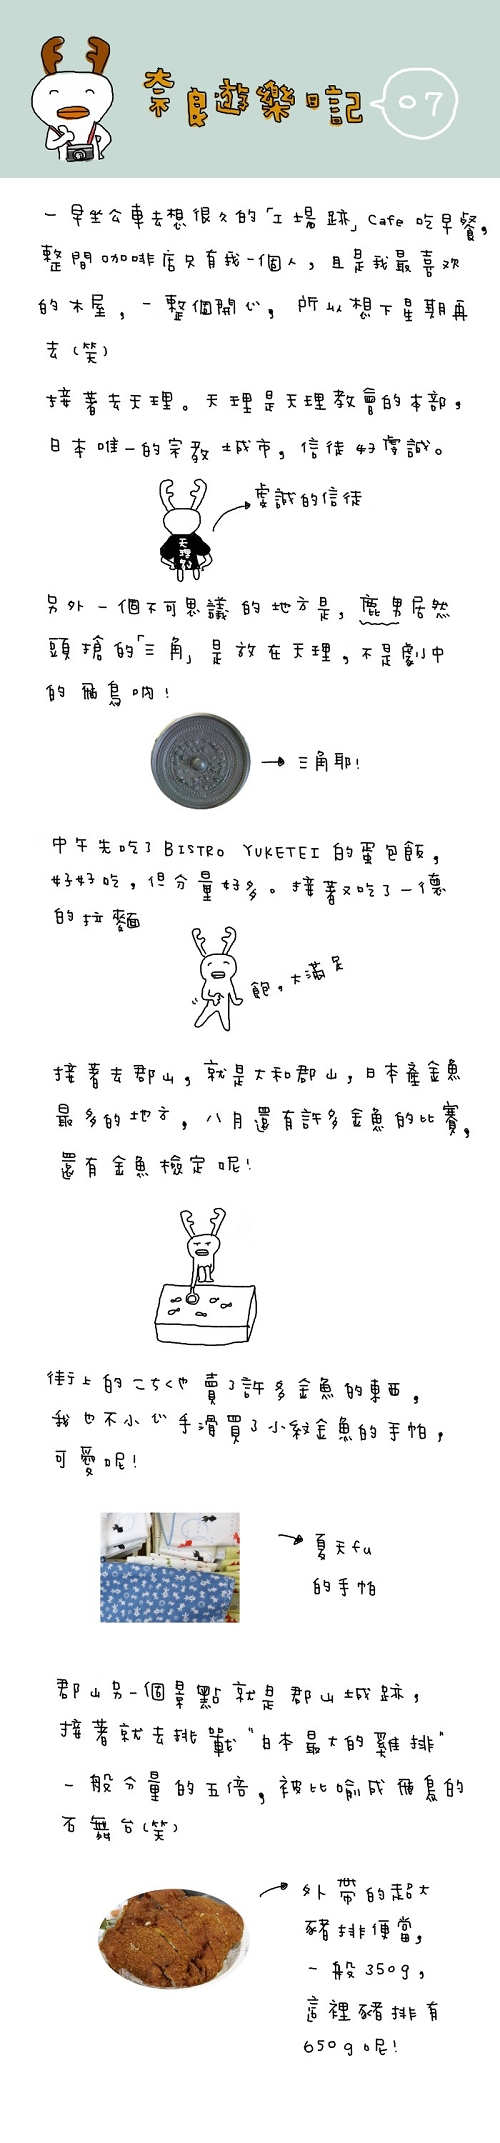 奈良遊樂日記 07
一早坐公車去想很久的「工場跡」Cafe 吃早餐,
整間咖啡店只有我一個人,且是我最喜欢
的木屋,一整個開心,所以想下星期再
去(笑)
接著去天理。天理是天理教會的本部,
日本唯一的宗教城市,信徒好虔誠。
虔誠的信徒
天理教
另外一個不可思議的地方是,鹿男居然
頭搶的「三角」是放在天理,不是劇中
的飛鳥吶!
三角耶!
中午先吃了BISTRO YUKETEI的蛋包飯,
好好吃,但分量好多。接著又吃了一億
的拉麵
飽,大滿足
接著去郡山,就是大和郡山,日本產金魚
最多的地方,八月還有許多金魚的比賽,
還有金魚檢定呢!
街上的こちくや賣了許多金魚的東西,
我也不小心手滑買了小紋金魚的手帕,
可愛呢!
夏天fu
的手帕
郡山另一個景點就是郡山城跡,
接著就去挑戰"日本最大的雞排"
一般分量的五倍,被比喻成飛鳥的
石舞台(笑)
外帶的超大
豬排便當,
一般350g,
這裡豬排有
650g呢!